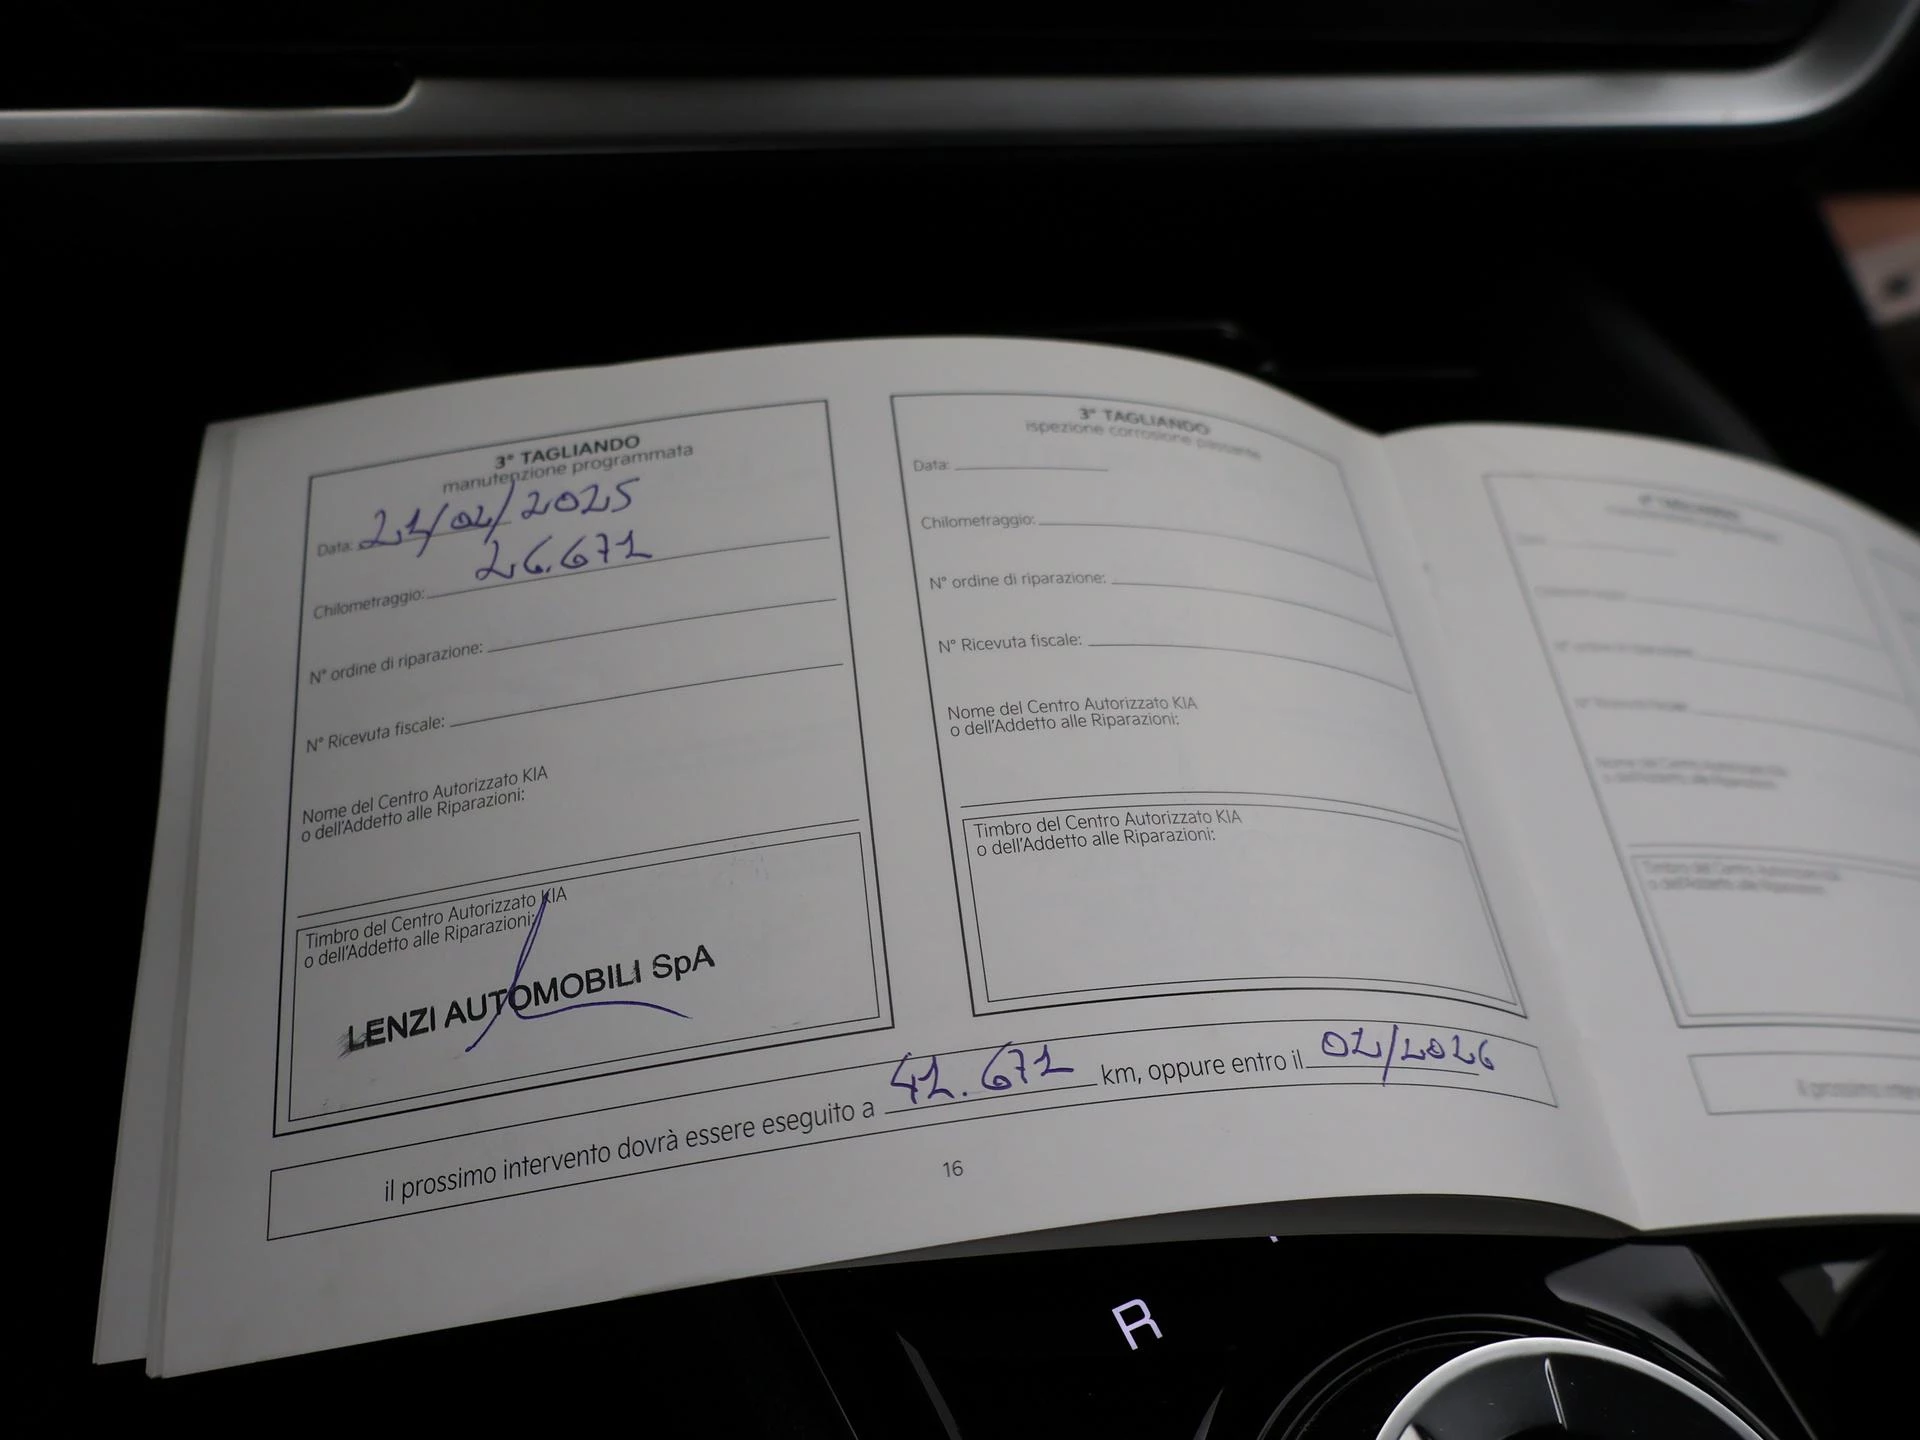 3° TAGLIANDO
manutenzione programmata
Data: 21/02/2025
Chilometraggio: 26.671
N° ordine di riparazione:
N° Ricevuta fiscale:
Nome del Centro Autorizzato KIA
o dell'Addetto alle Riparazioni:
Timbro del Centro Autorizzato KIA
o dell'Addetto alle Riparazioni:
LENZI AUTOMOBILI SpA
3° TAGLIANDO
ispezione corrosione passante
Data:
Chilometraggio:
N° ordine di riparazione:
N° Ricevuta fiscale:
Nome del Centro Autorizzato KIA
o dell'Addetto alle Riparazioni:
Timbro del Centro Autorizzato KIA
o dell'Addetto alle Riparazioni:
il prossimo intervento dovrà essere eseguito a 41.671 km, oppure entro il 02/2026
16
Nome del Centro Autorizzato KIA
o dell'Addetto alle Riparazioni:
Timbro del Centro Autorizzato KIA
o dell'Addetto alle Riparazioni:
R